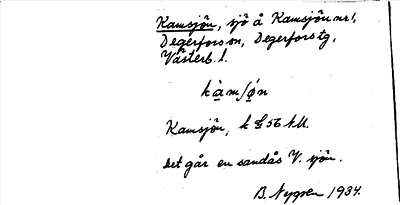 Kamsjön, sjö å Kamsjön nr 1,
Degerfors sn, Degerfors tg,
Västerb. l.
kàmʃö́n
Kamsjön, k 56 NU.
Det går en sandås V. sjön.
B. Nygren 1934.